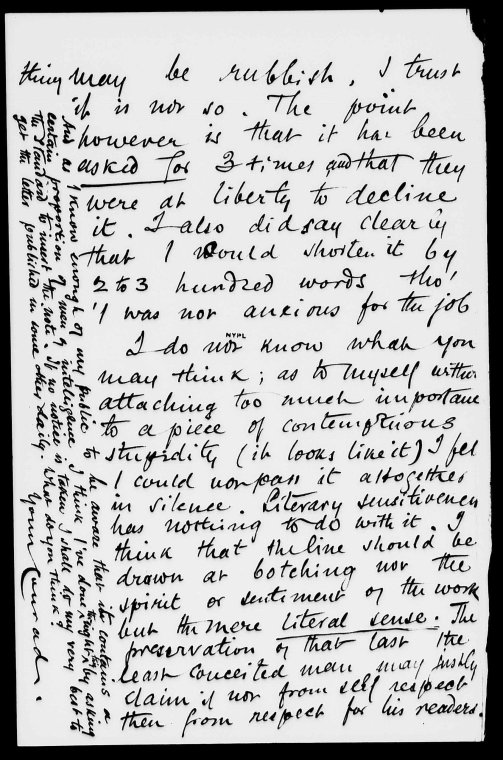 thing may be rubbish, I trust
it is not so. The point
however is that it has been
asked for 3 times and that they
were at liberty to decline
it. I also did say clearly
that I would shorten it by
2 to 3 hundred words tho'
I was not anxious for the job
NYPL
I do not know what you
may think; as to myself without
attaching too much importance
to a piece of contemptuous
stupidity (it looks like it) I feel
I could not pass it altogether
in silence. Literary sensitiveness
has nothing to do with it. I
think that the line should be
drawn at botching not the
spirit or sentiment of the work
but the mere literal sense. The
preservation of that last the
least conceited man may justly
claim if not from self respect
then from respect for his readers.
And as I know enough of my public to be aware that it contains a
certain proportion of men of intelligence I think I've done right by asking
the Standard to insert the note. If no notice is taken I shall try my very best to
get the letter published in some other daily. What do you think?
Yours Conrad.